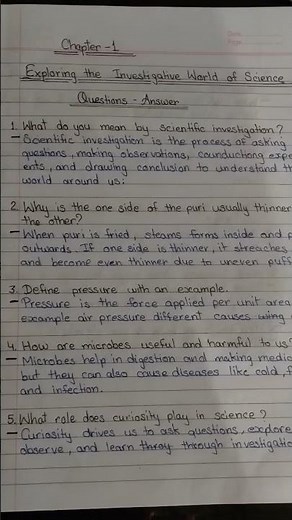 Chapter - 1
Exploring the Investigative World of Science
Questions - Answer
1. What do you mean by scientific investigation?
- Scientific investigation is the process of asking
questions, making observations, counductiong expe
ents, and drawing conclusion to understand th
world around us.
2. Why is the one side of the puri usually thinner
the other?
- When puri is fried, steams forms inside and p
outwards. If one side is thinner, it streaches
and become even thinner due to uneven puff
3. Define pressure with an example.
- Pressure is the force applied per unit area
example air pressure different causes wing
4. How are microbes useful and harmful to us?
- Microbes help in digestion and making medic
but they can also cause diseases like cold, f
and infection.
5. What role does curiosity play in science?
- Curiosity drives us to ask questions, explore
observe, and learn throy through investigatio